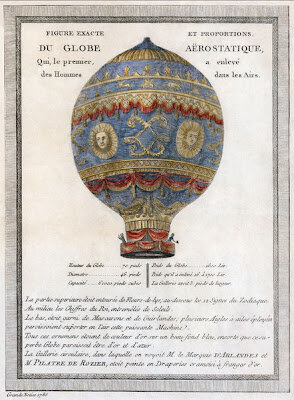 FIGURE EXACTE ET PROPORTIONS,
DU GLOBE AËROSTATIQUE,
Qui, le premier, a enlevé
des Hommes dans les Airs.
Hauteur du Globe 70 pieds Poids du Globe 1600 Liv.
Diametre 46 pieds Poids qu'il a enlevé 16 à 1700 Liv.
Capacité 60000 pieds cubes La Gallerie avoit 3 pieds de largeur
La partie superieure étoit entourée de Fleurs-de-lys, au-dessous les 12 Signes du Zodiaque.
Au milieu les Chiffres du Roi, entremêlés de Soleils.
Le bas, étoit garni de Mascarons et de Guirlandes, plusieurs Aigles à ailes éployées
paroissoient supporter en l'air cette puissante Machine.
Tous ces ornemens étoient de couleur d'or sur un beau fond bleu, ensorte que ce su-
perbe Globe paroissoit être d'or et d'azur.
La Gallerie circulaire, dans laquelle on voyoit M. le Marquis D'ARLANDES et
M. PILATRE DE ROZIER, étoit peinte en Draperies cramoisi à franges d'or.
1786